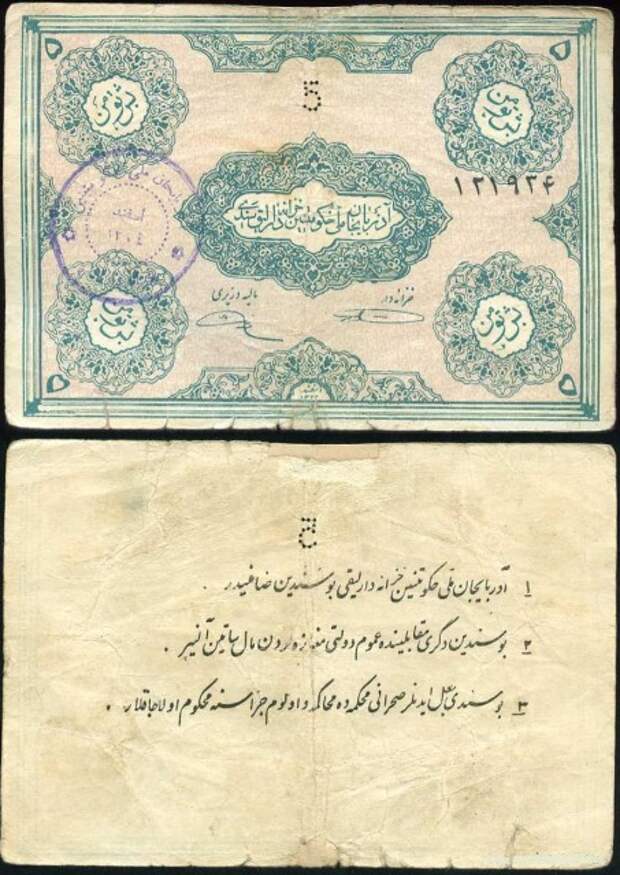 ۵ ۵
5
۱۲۱۹۳۴
آذربایجان ملی حکومتینین خزانه دارلیق سندی
مالیه وزیری خزانه دار
۵ ۵
5
۱ آذربایجان ملی حکومتنین خزانه داریلقی بو سندین ضامنیدیر.
۲ بو سندین دگری مقابلینده عموم دولتی مغازه لردن مال ساتین آلنیر.
۳ بو سندی جعل ایدنلر صحرائی محکمه ده محاکمه و اولوم جزاسنه محکوم اولاجاقلار.